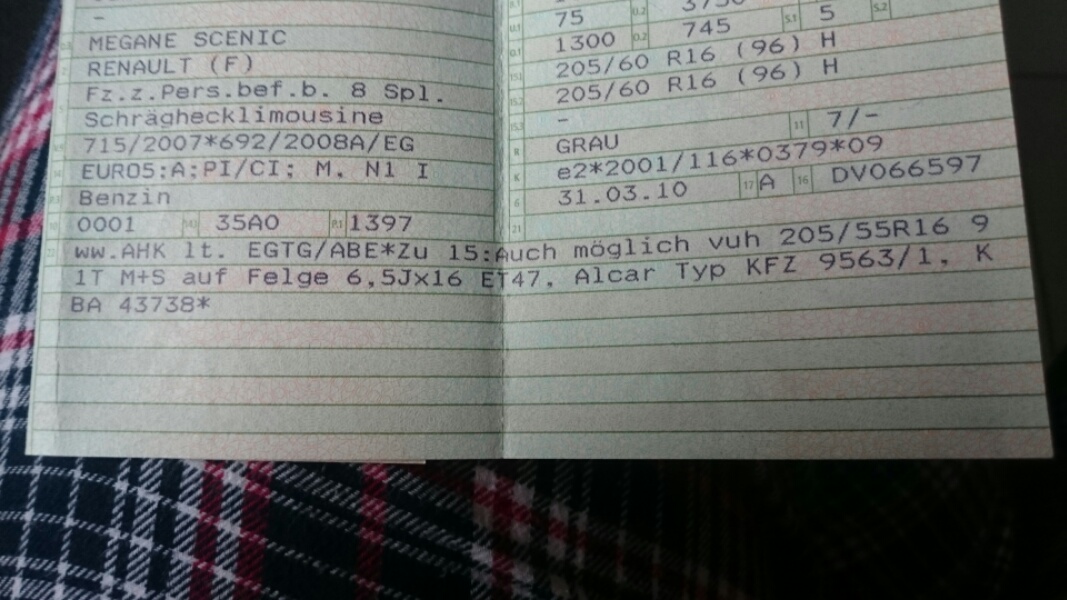 -
MEGANE SCENIC
RENAULT (F)
Fz.z.Pers.bef.b. 8 Spl.
Schräghecklimousine
715/2007*692/2008A/EG
EURO5;A;PI/CI; M, N1 I
Benzin
0001 35A0 P.1 1397
75 O.2
1300 O.2 745 S.1 5 S.2
205/60 R16 (96) H
205/60 R16 (96) H
-
GRAU 11 7/-
e2*2001/116*0379*09
31.03.10 17 A 16 DV066597
21
22 ww.AHK lt. EGTG/ABE*Zu 15:Auch möglich vuh 205/55R16 9
1T M+S auf Felge 6,5Jx16 ET47, Alcar Typ KFZ 9563/1, K
BA 43738*